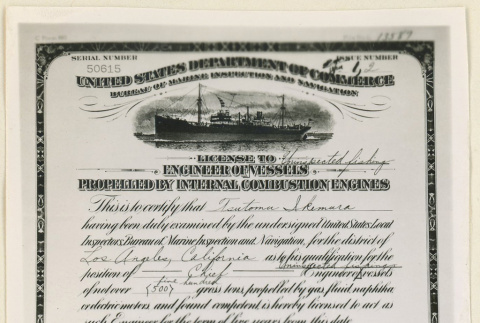 13887
SERIAL NUMBER
ISSUE NUMBER
50615
1, 2
UNITED STATES DEPARTMENT OF COMMERCE
BUREAU OF MARINE INSPECTION AND NAVIGATION
LICENSE TO Uninspected fishing
ENGINEER OF VESSELS
PROPELLED BY INTERNAL COMBUSTION ENGINES
This is to certify that Tsutomu Ikemura
having been duly examined by the undersigned United States Local
Inspectors, Bureau of Marine Inspection and Navigation, for the district of
Los Angeles, California as to his qualification for the
position of Chief Engineer of Vessels
five hundred
of not over (500) gross tons, propelled by gas, fluid, naphtha,
or electric motors and found competent, is hereby licensed to act as
such Engineer for the term of five years from this date